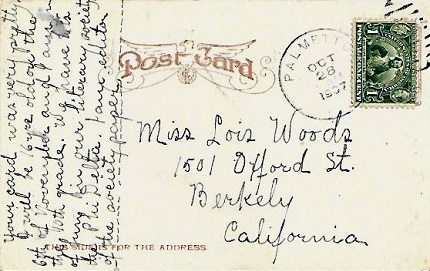 Your card was very pretty
I will be 16 yrs old on the
6th of November and I am in
the 10th grade. We have its
for our literary society
the Phi Delta. I am editor
of the society paper.
Post Card
PALMETTO
OCT
28
1907
1
1
Miss Lois Woods
1501 Oxford St.
Berkely
California
THIS SIDE IS FOR THE ADDRESS